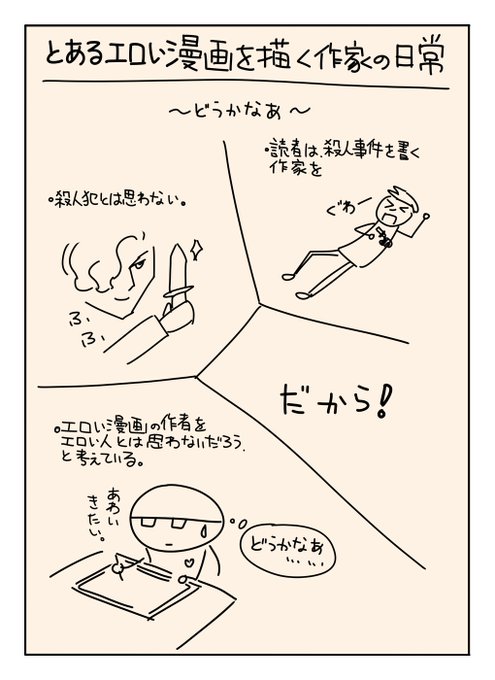 とあるエロい漫画を描く作家の日常
～どうかなあ～
・読者は、殺人事件を書く
作家を
ぐわー
・殺人犯とは思わない。
ふ、
ふ、
だから!
。エロい漫画の作者を
エロい人とは思わないだろう、
と考えている。
あわい
きたい。
どうかなあ
……